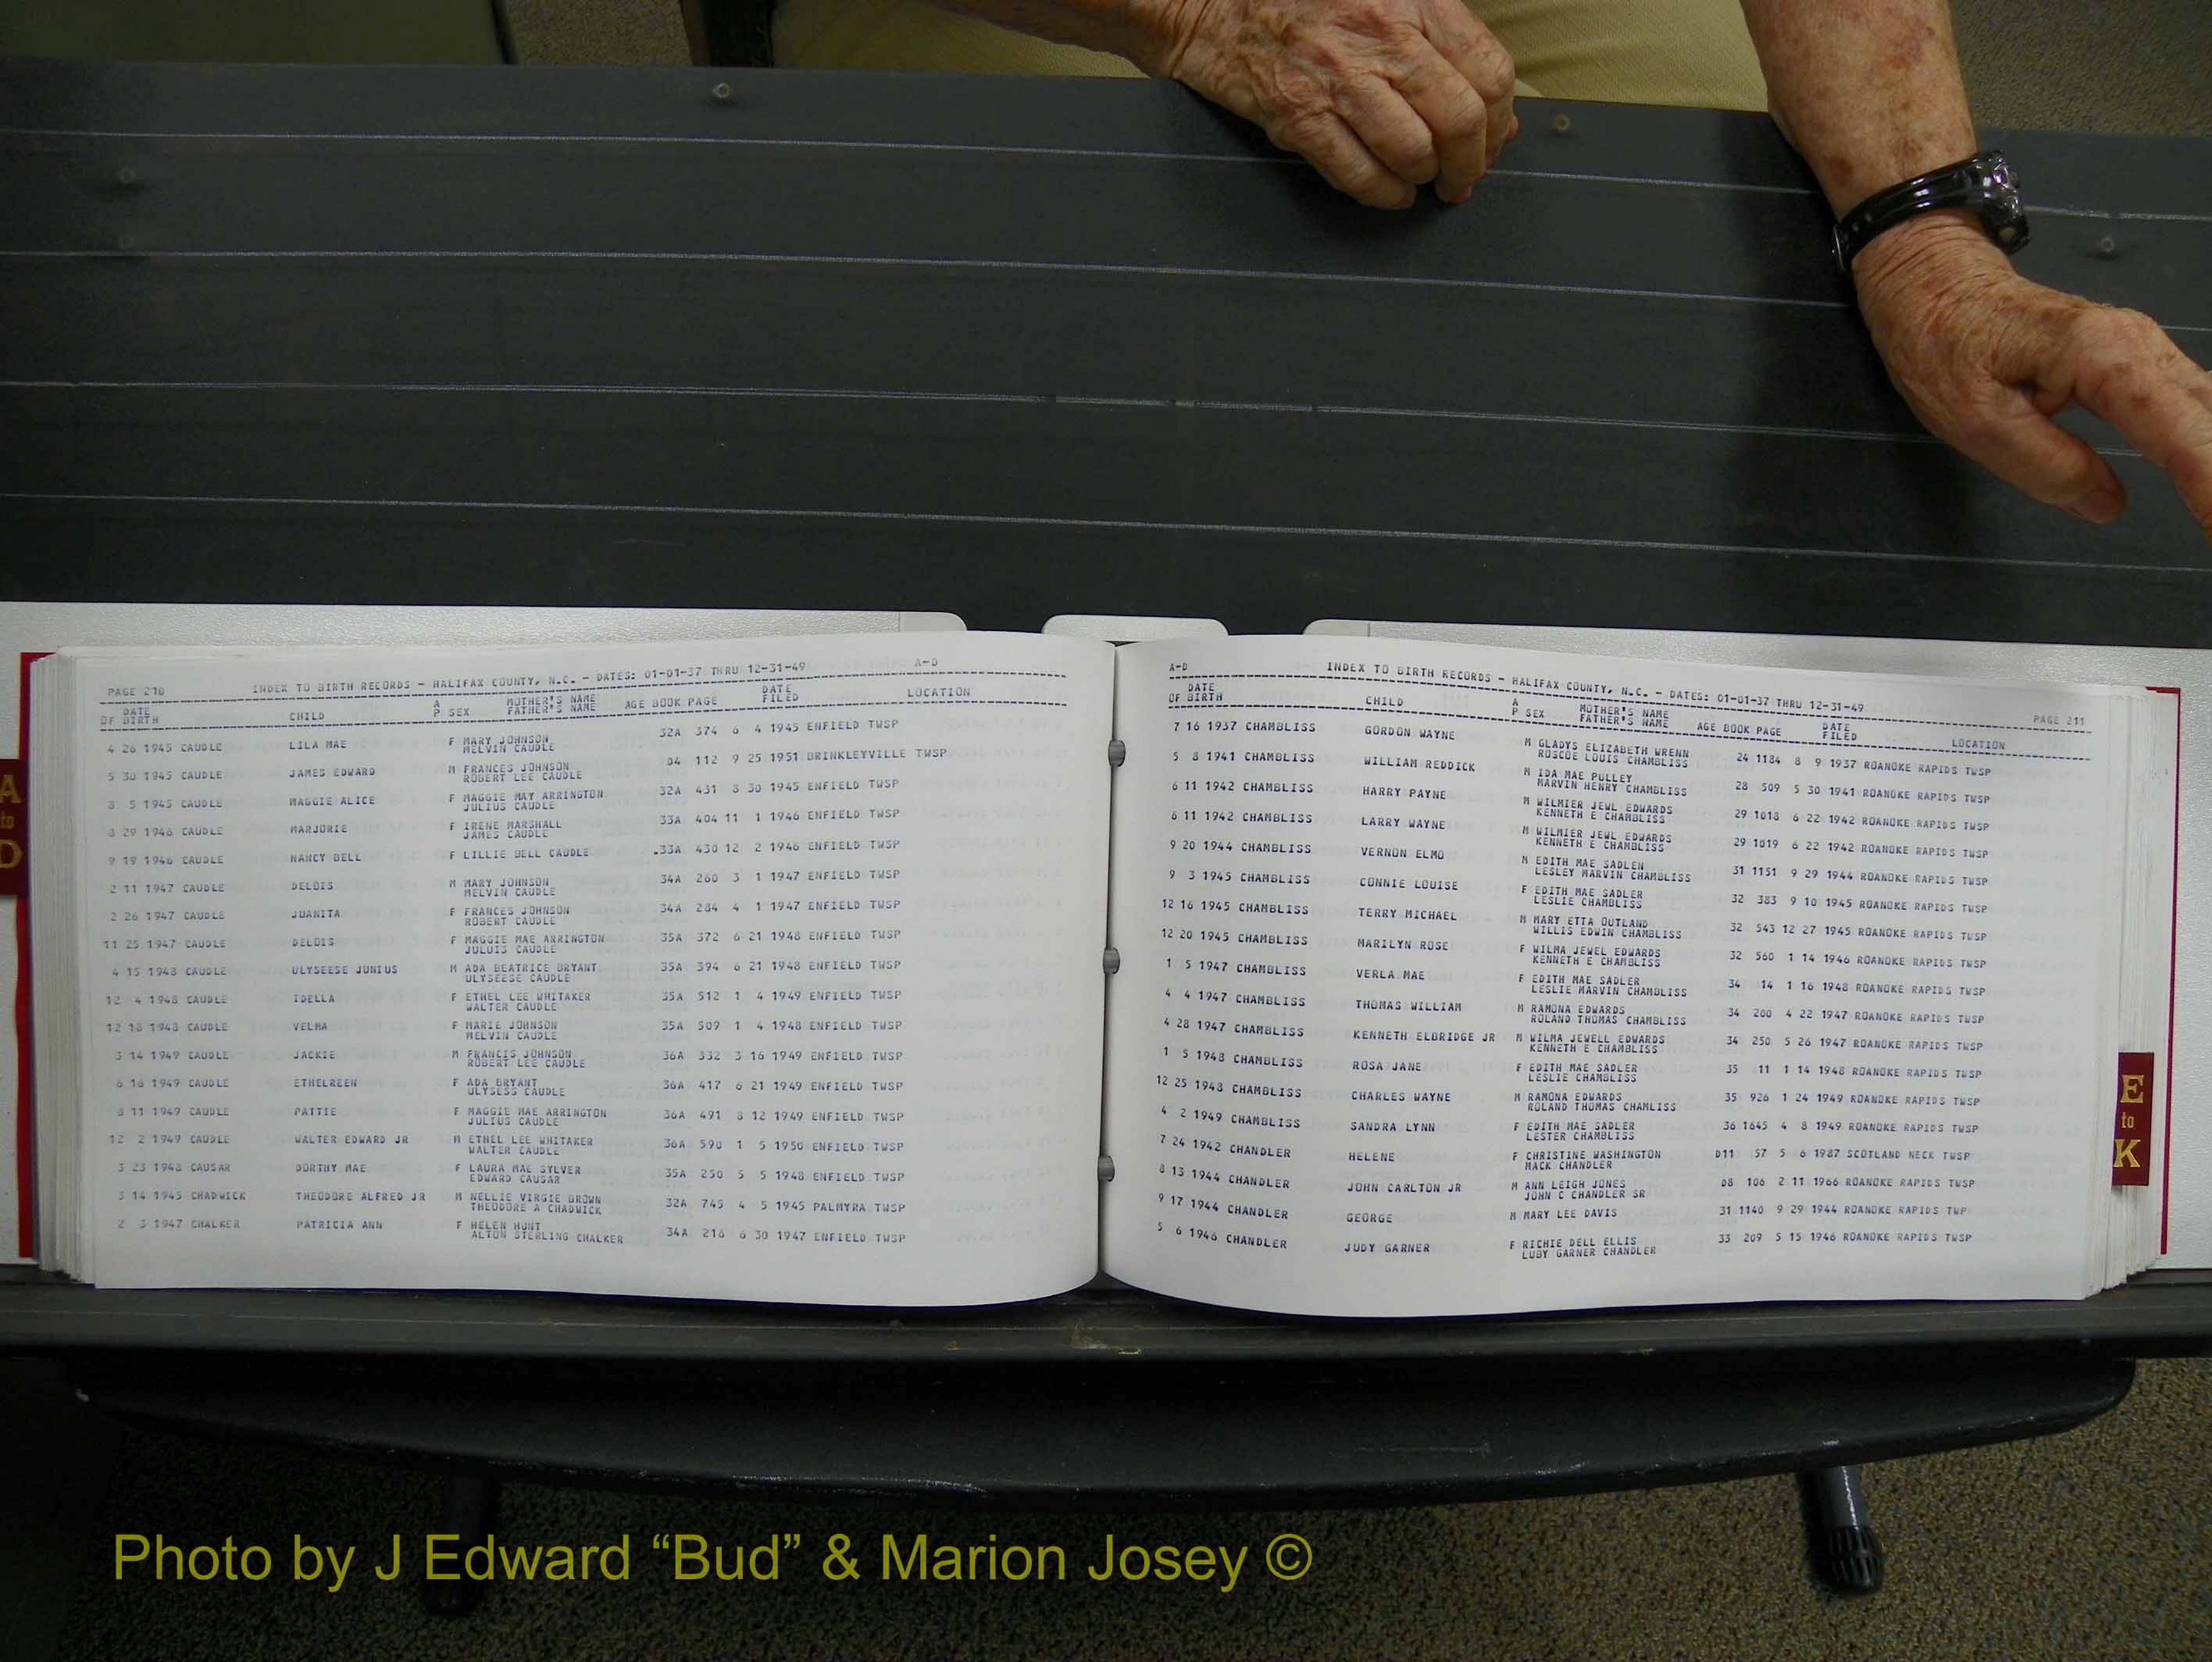 PAGE 210 INDEX TO BIRTH RECORDS - HALIFAX COUNTY, N.C. - DATES: 01-01-37 THRU 12-31-49 A-D
DATE OF BIRTH CHILD A P SEX MOTHER'S NAME FATHER'S NAME AGE BOOK PAGE DATE FILED LOCATION
4 26 1945 CAUDLE LILA MAE F MARY JOHNSON 32A 374 6 4 1945 ENFIELD TWSP
MELVIN CAUDLE
5 30 1945 CAUDLE JAMES EDWARD M FRANCES JOHNSON D4 112 9 25 1951 BRINKLEYVILLE TWSP
ROBERT LEE CAUDLE
8 5 1945 CAUDLE MAGGIE ALICE F MAGGIE MAY ARRINGTON 32A 431 8 30 1945 ENFIELD TWSP
JULIUS CAUDLE
8 29 1946 CAUDLE MARJORIE F IRENE MARSHALL 33A 404 11 1 1946 ENFIELD TWSP
JAMES CAUDLE
9 19 1946 CAUDLE NANCY BELL F LILLIE BELL CAUDLE 33A 430 12 2 1946 ENFIELD TWSP
2 11 1947 CAUDLE DELOIS M MARY JOHNSON 34A 260 3 1 1947 ENFIELD TWSP
MELVIN CAUDLE
2 26 1947 CAUDLE JUANITA F FRANCES JOHNSON 34A 284 4 1 1947 ENFIELD TWSP
ROBERT CAUDLE
11 25 1947 CAUDLE DELOIS F MAGGIE MAE ARRINGTON 35A 372 6 21 1948 ENFIELD TWSP
JULUIS CAUDLE
4 15 1948 CAUDLE ULYSEESE JUNIUS M ADA BEATRICE BRYANT 35A 394 6 21 1948 ENFIELD TWSP
ULYSEESE CAUDLE
12 4 1948 CAUDLE IDELLA F ETHEL LEE WHITAKER 35A 512 1 4 1949 ENFIELD TWSP
WALTER CAUDLE
12 18 1948 CAUDLE VELMA F MARIE JOHNSON 35A 509 1 4 1948 ENFIELD TWSP
MELVIN CAUDLE
3 14 1949 CAUDLE JACKIE M FRANCIS JOHNSON 36A 332 3 16 1949 ENFIELD TWSP
ROBERT LEE CAUDLE
6 16 1949 CAUDLE ETHELREEN F ADA BRYANT 36A 417 6 21 1949 ENFIELD TWSP
ULYSESS CAUDLE
8 11 1949 CAUDLE PATTIE F MAGGIE MAE ARRINGTON 36A 491 8 12 1949 ENFIELD TWSP
JULIUS CAUDLE
12 2 1949 CAUDLE WALTER EDWARD JR M ETHEL LEE WHITAKER 36A 590 1 5 1950 ENFIELD TWSP
WALTER CAUDLE
3 23 1948 CAUSAR DORTHY MAE F LAURA MAE SYLVER 35A 250 5 5 1948 ENFIELD TWSP
EDWARD CAUSAR
3 14 1945 CHADWICK THEODORE ALFRED JR M NELLIE VIRGIE BROWN 32A 745 4 5 1945 PALMYRA TWSP
THEODORE A CHADWICK
2 3 1947 CHALKER PATRICIA ANN F HELEN HUNT 34A 216 6 30 1947 ENFIELD TWSP
ALTON STERLING CHALKER
A-D INDEX TO BIRTH RECORDS - HALIFAX COUNTY, N.C. - DATES: 01-01-37 THRU 12-31-49 PAGE 211
DATE OF BIRTH CHILD A P SEX MOTHER'S NAME FATHER'S NAME AGE BOOK PAGE DATE FILED LOCATION
7 16 1937 CHAMBLISS GORDON WAYNE M GLADYS ELIZABETH WRENN 24 1184 8 9 1937 ROANOKE RAPIDS TWSP
ROSCOE LOUIS CHAMBLISS
5 8 1941 CHAMBLISS WILLIAM REDDICK M IDA MAE PULLEY 28 509 5 30 1941 ROANOKE RAPIDS TWSP
MARVIN HENRY CHAMBLISS
6 11 1942 CHAMBLISS HARRY PAYNE M WILMIER JEWL EDWARDS 29 1018 6 22 1942 ROANOKE RAPIDS TWSP
KENNETH E CHAMBLISS
6 11 1942 CHAMBLISS LARRY WAYNE M WILMIER JEWL EDWARDS 29 1019 6 22 1942 ROANOKE RAPIDS TWSP
KENNETH E CHAMBLISS
9 20 1944 CHAMBLISS VERNON ELMO M EDITH MAE SADLEN 31 1151 9 29 1944 ROANOKE RAPIDS TWSP
LESLEY MARVIN CHAMBLISS
9 3 1945 CHAMBLISS CONNIE LOUISE F EDITH MAE SADLER 32 383 9 10 1945 ROANOKE RAPIDS TWSP
LESLIE CHAMBLISS
12 16 1945 CHAMBLISS TERRY MICHAEL M MARY ETTA OUTLAND 32 543 12 27 1945 ROANOKE RAPIDS TWSP
WILLIS EDWIN CHAMBLISS
12 20 1945 CHAMBLISS MARILYN ROSE F WILMA JEWEL EDWARDS 32 560 1 14 1946 ROANOKE RAPIDS TWSP
KENNETH E CHAMBLISS
1 5 1947 CHAMBLISS VERLA MAE F EDITH MAE SADLER 34 14 1 16 1948 ROANOKE RAPIDS TWSP
LESLIE MARVIN CHAMBLISS
4 4 1947 CHAMBLISS THOMAS WILLIAM M RAMONA EDWARDS 34 200 4 22 1947 ROANOKE RAPIDS TWSP
ROLAND THOMAS CHAMBLISS
4 28 1947 CHAMBLISS KENNETH ELBRIDGE JR M WILMA JEWELL EDWARDS 34 250 5 26 1947 ROANOKE RAPIDS TWSP
KENNETH E CHAMBLISS
1 5 1948 CHAMBLISS ROSA JANE F EDITH MAE SADLER 35 11 1 14 1948 ROANOKE RAPIDS TWSP
LESLIE CHAMBLISS
12 25 1948 CHAMBLISS CHARLES WAYNE M RAMONA EDWARDS 35 926 1 24 1949 ROANOKE RAPIDS TWSP
ROLAND THOMAS CHAMLISS
4 2 1949 CHAMBLISS SANDRA LYNN F EDITH MAE SADLER 36 1645 4 8 1949 ROANOKE RAPIDS TWSP
LESTER CHAMBLISS
7 24 1942 CHANDLER HELENE F CHRISTINE WASHINGTON D11 57 5 6 1987 SCOTLAND NECK TWSP
MACK CHANDLER
8 13 1944 CHANDLER JOHN CARLTON JR M ANN LEIGH JONES D8 106 2 11 1966 ROANOKE RAPIDS TWSP
JOHN C CHANDLER SR
9 17 1944 CHANDLER GEORGE M MARY LEE DAVIS 31 1140 9 29 1944 ROANOKE RAPIDS TWP
5 6 1946 CHANDLER JUDY GARNER F RICHIE DELL ELLIS 33 209 5 15 1946 ROANOKE RAPIDS TWSP
LUBY GARNER CHANDLER
A
to
D
E
to
K
Photo by J Edward “Bud” & Marion Josey ©